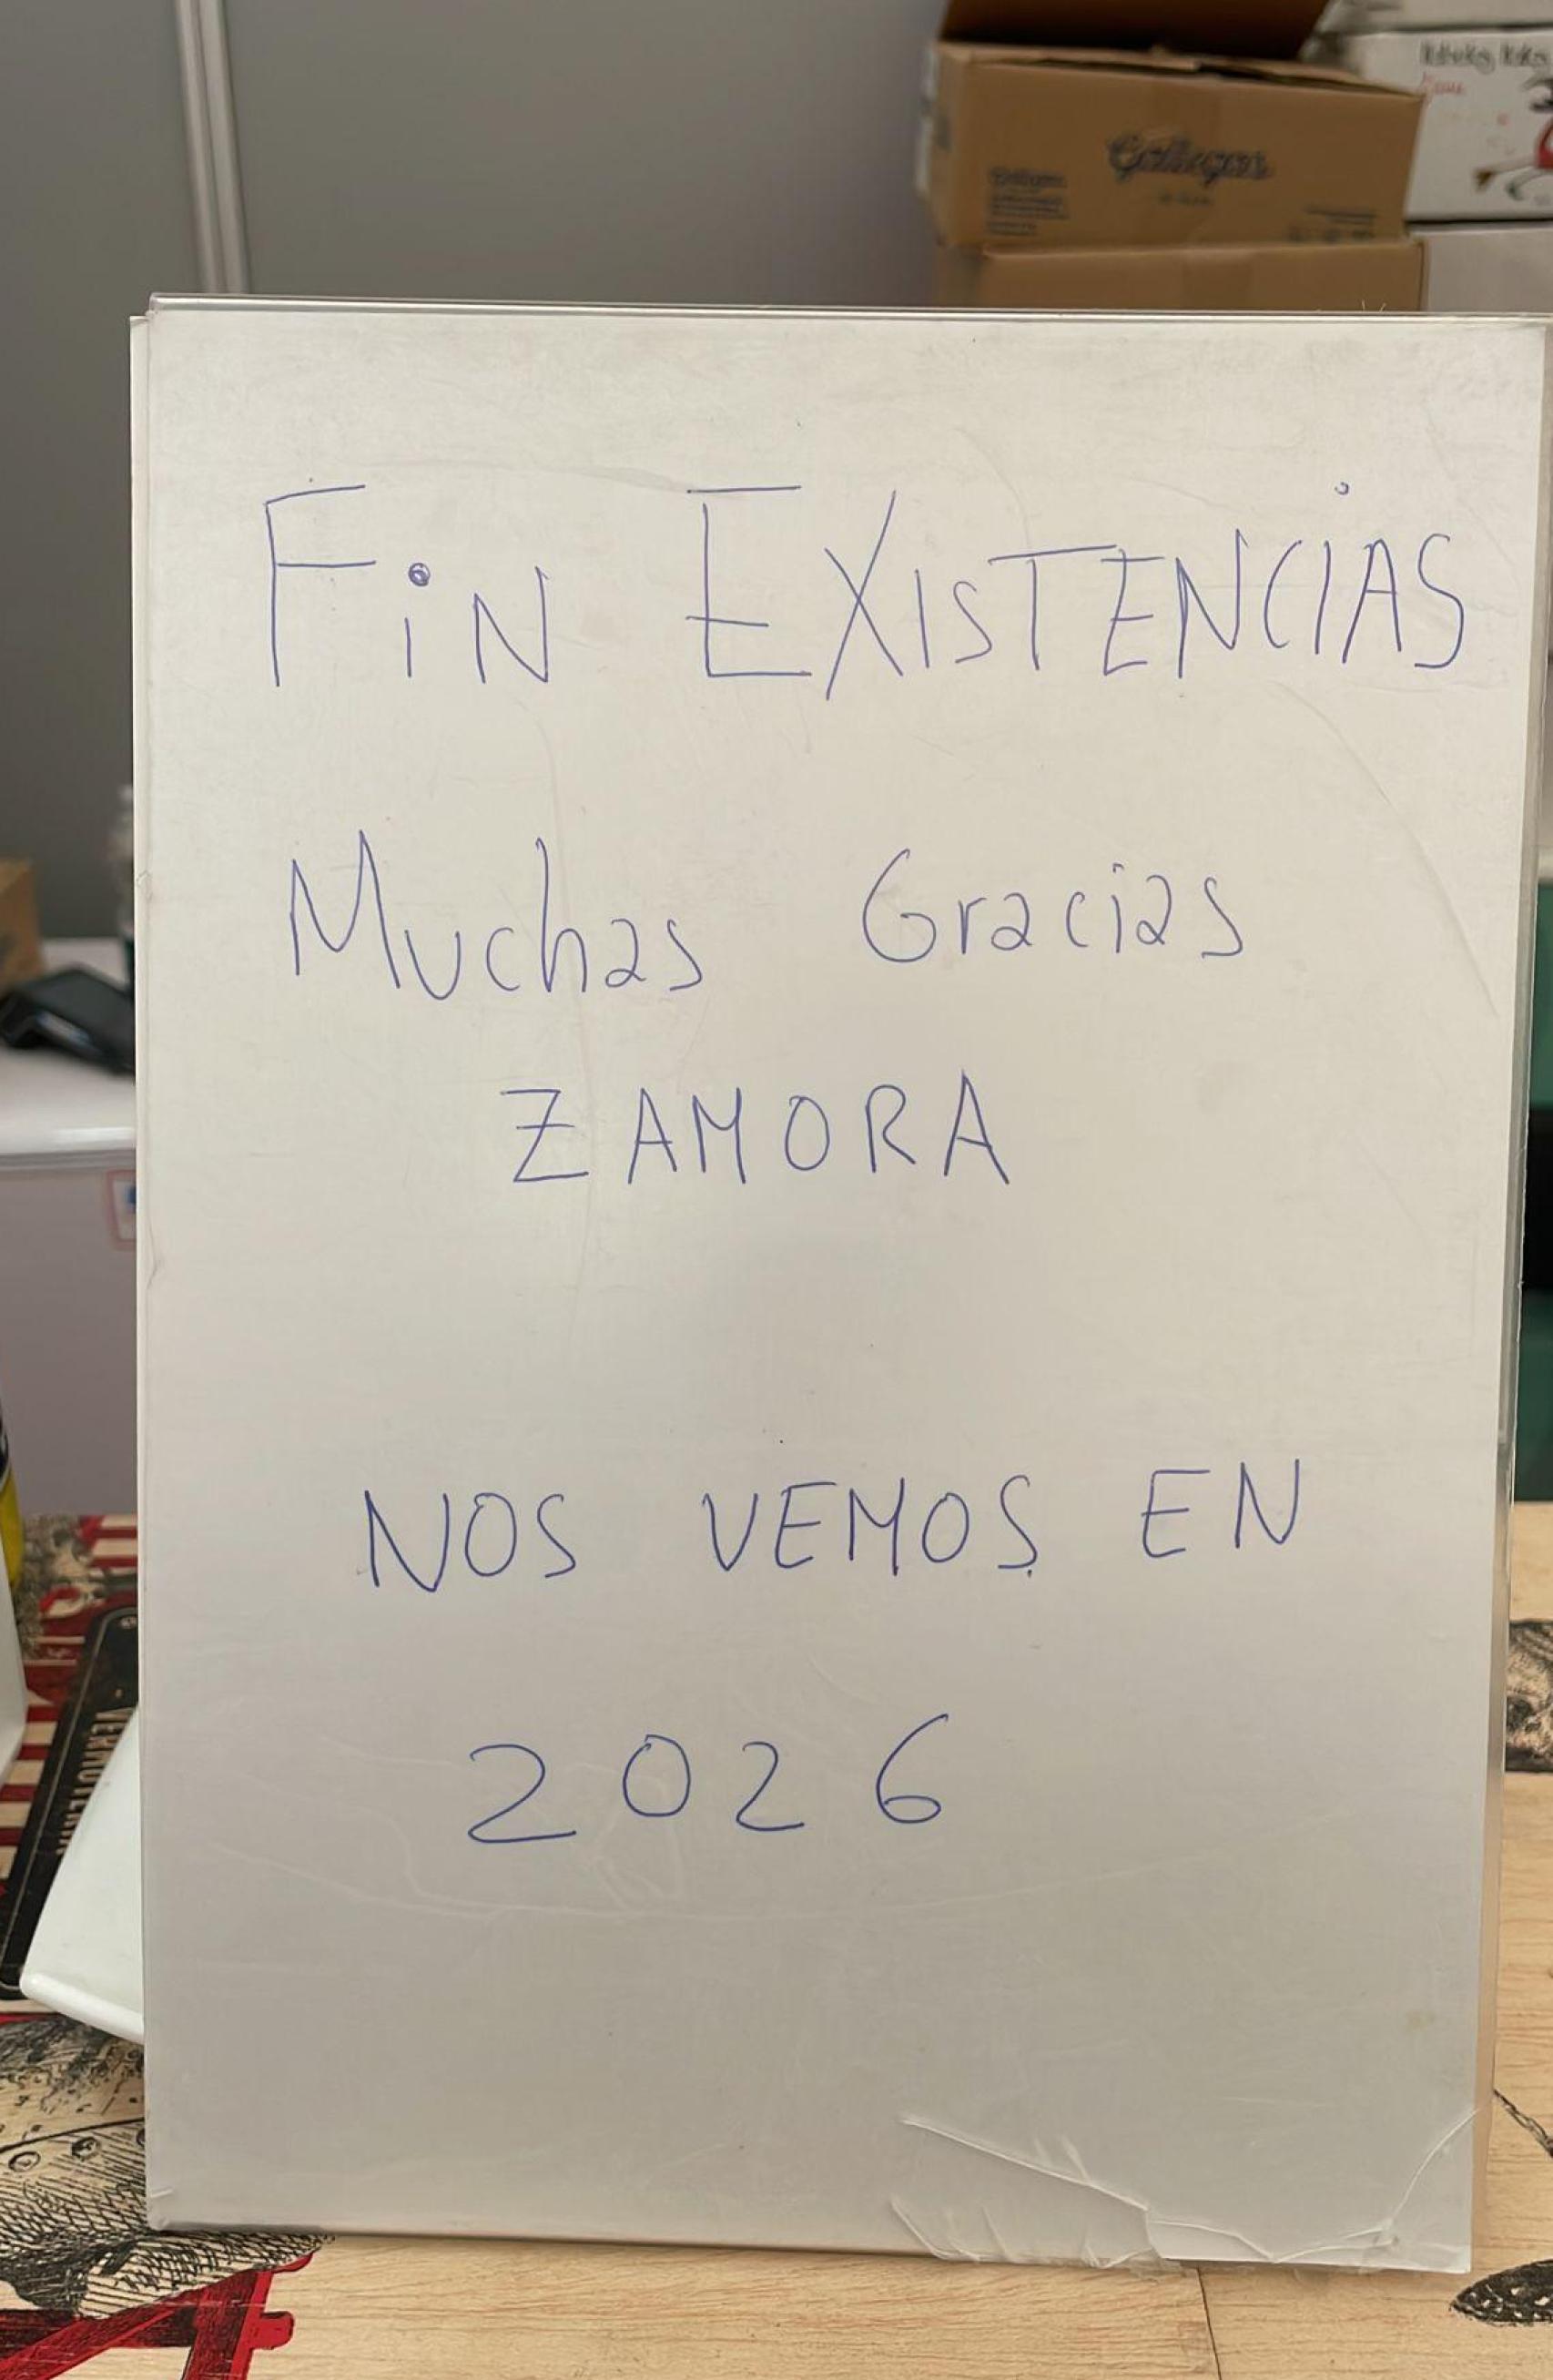 Gallegos
FiN EXISTENCIAS
Muchas Gracias
ZAMORA
NOS VEMOS EN
2026
VERMUTERIA